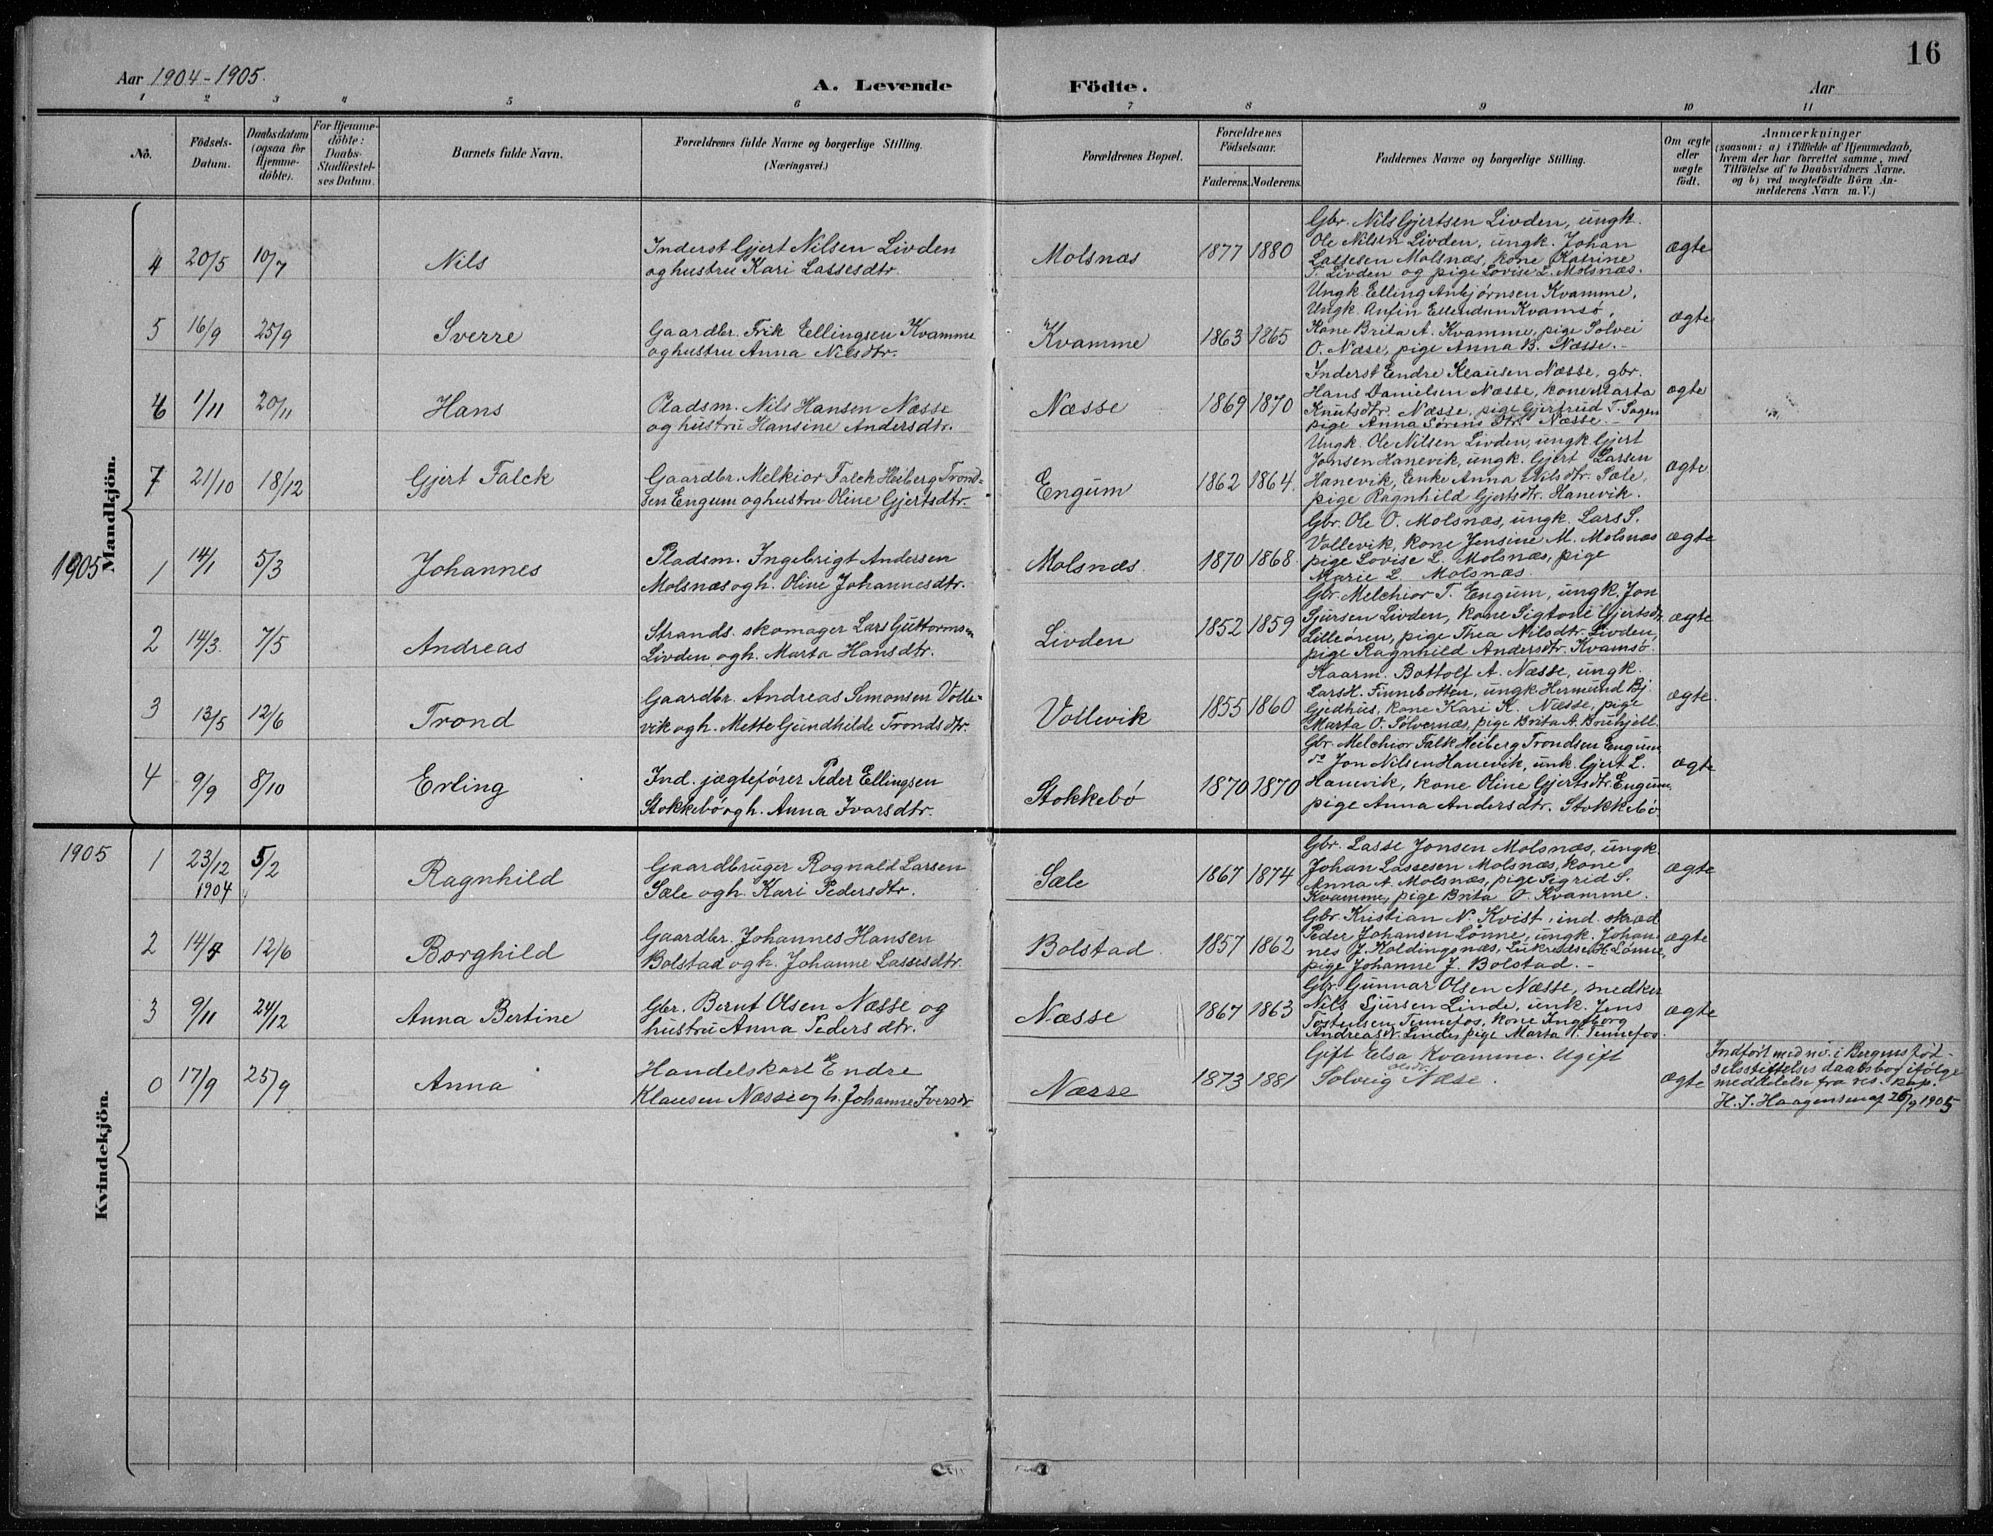 16
Aar 1904-1905.
A. Levende Födte.
Aar
1 2 3 4 5 6 7 8 9 10 11
No.
Födsels-Datum.
Daabsdatum (ogsaa for Hjemme-döbte).
For Hjemme-döbte: Daabs-Stadfæstel-ses Datum.
Barnets fulde Navn.
Forældrenes fulde Navne og borgerlige Stilling. (Næringsvei.)
Forældrenes Bopæl.
Forældrenes Födselsaar.
Faderens. Moderens.
Faddernes Navne og borgerlige Stilling.
Om ægte eller uægte födt.
Anmærkninger
(saasom: a) i Tilfælde af Hjemmedaab, hvem der har forrettet samme, med Tilföielse af to Daabsvidners Navne. og b) ved uægtefödte Börn An-melderens Navn m. V.)
Mandkjön.
4 20/5 10/7 Nils
Inderst Gjert Nilsen Livden
og hustru Kari Lassesdtr.
Molsnæs 1877 1880
Gbr. Nils Gjertsen Livden, ungk.
Ole Nilsen Livden, ungk. Johan
Lassesen Molsnæs, kone Katrine
T. Livden og pige Lovise L. Molsnæs.
ægte
5 16/9 25/9 Sverre
Gaardbr. Erik Ellingsen Kvamme
og hustru Anna Nilsdtr.
Kvamme 1863 1865
Ungk. Elling Anbjørnsen Kvamme,
Ungk. Anfin Ellendsen Kvamsø,
Kone Brita A. Kvamme, pige Solvei
O. Næse, pige Anna B. Næsse.
ægte
6 1/11 20/11 Hans
Pladsm. Nils Hansen Næsse
og hustru Hansine Andersdtr.
Næsse 1869 1870
Inderst Endre Klausen Næsse, gbr.
Hans Danielsen Næsse, kone Marta
Knutsdtr. Næsse, pige Gjertrud T. Sagen
pige Anna Sørens dtr. Næsse.
ægte
7 21/10 18/12 Gjert Falck
Gaardbr. Melkior Falck Heiberg Trond-
sen Engum og hustru Oline Gjertsdtr.
Engum 1862 1864.
Ungk. Ole Nilsen Livden, ungk. Gjert
Jonsen Hanevik, ungk. Gjert Larsen
Hanevik, Enke Anna Nilsdtr. Sæle,
pige Ragnhild Gjertsdtr. Hanevik.
ægte
1905
1 14/1 5/3 Johannes
Pladsm. Ingebrigt Andersen
Molsnæs og h. Oline Johannesdtr.
Molsnæs 1870 1868
Gbr. Ole O. Molsnæs, ungk. Lars S.
Vollevik, kone Jensine M. Molsnæs
pige Lovise L. Molsnæs, pige
Marie L. Molsnæs.
ægte
2 14/3. 7/5 Andreas
Strands. skomager Lars Guttormsen
Livden og h. Marta Hansdtr.
Livden 1852 1859
Gbr. Melchior T. Engum, ungk. Jon
Sjursen Livden, kone Sigtone Gjertsdtr.
Lilleøren, pige Thea Nilsdtr. Livden,
pige Ragnhild Andersdtr. Kvamsø.
ægte
3 13/5 12/6 Trond
Gaardbr. Andreas Simonsen Volle-
vik og h. Mette Gundhilde Tronds dtr.
Vollevik 1855 1860
Kaarm. Bottolf A. Næsse, ungk.
Lars H. Finnebotten, ungk. Hermund Bj.
Gjedhus, kone Kari K. Næsse, pige
Marta O. Sølvernæs, pige Brita A. Bruhjell.
ægte.
4 9/9 8/10 Erling
Ind. jægtefører Peder Ellingsen
Stokkebø og h. Anna Ivarsdtr.
Stokkebø 1870 1870
Gbr. Melchior Falk Heiberg Trondsen Engum
do Jon Nilsen Hanevik, unk. Gjert L.
Hanevik, kone Oline Gjertsdtr. Engum,
pige Anna Andersdtr. Stokkebø
ægte
Kvindekjön.
1905
1 23/12 1904 5/2 Ragnhild
Gaardbruger Rognald Larsen
Sæle og h. Kari Pedersdtr.
Sæle 1867 1874
Gbr. Lasse Jonsen Molsnæs, ungk.
Johan Lassesen Molsnæs, kone
Anna A. Molsnæs, pige Sigrid S.
Kvamme, pige Brita O. Kvamme.
ægte
2 14/4 12/6 Borghild
Gaardbr. Johannes Hansen
Bolstad og h. Johanne Lassesdtr.
Bolstad 1857 1862
Gbr. Kristian N. Kvist, ind. skræd
Peder Johansen Lønne, ungk. Johan-
nes J. Holdingsnæs, H. Lønne,
pige Johanne J. Bolstad.
ægte
3 9/11 24/12 Anna Bertine
Gbr. Bernt Olsen Næsse og
hustru Anna Peders dtr.
Næsse 1867 1863
Gbr. Gunnar Olsen Næsse, snedker
Nils Sjursen Linde, unk. Jens
Tosteinsen Finnefos, kone Ingeborg
Andreasdtr. Linde, pige Marta T. Finnefos.
ægte
0 17/9 25/9 Anna
Handelskarl Endre
Klausen Næsse og h. Johanne Iversdtr
Næsse 1873 1881
Gift Elsa Kvamme. Ugift
Solveig Olsdtr. Næse.
ægte
Indført med no. i Bergens fød-
selsstiftelses daabsbog ifølge
meddelelse fra res. kap.
H. J. Haagensen af 26/9 1905